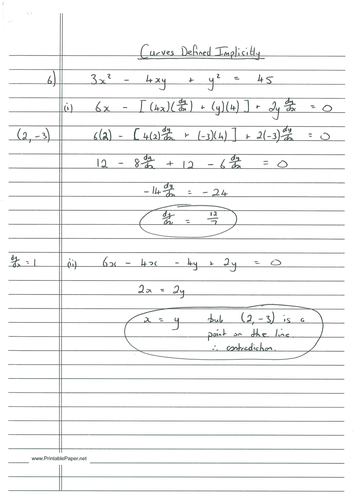 Curves Defined Implicitly
6) 3x² - 4xy + y² = 45
(i) 6x - [(4x)(dy/dx) + (y)(4)] + 2y dy/dx = 0
(2,-3) 6(2) - [4(2) dy/dx + (-3)(4)] + 2(-3) dy/dx = 0
12 - 8 dy/dx + 12 - 6 dy/dx = 0
-14 dy/dx = -24
dy/dx = 12/7
dy/dx = 1 (ii) 6x - 4x - 4y + 2y = 0
2x = 2y
x = y but (2,-3) is a
point on the line.
∴ contradiction.
www.PrintablePaper.net